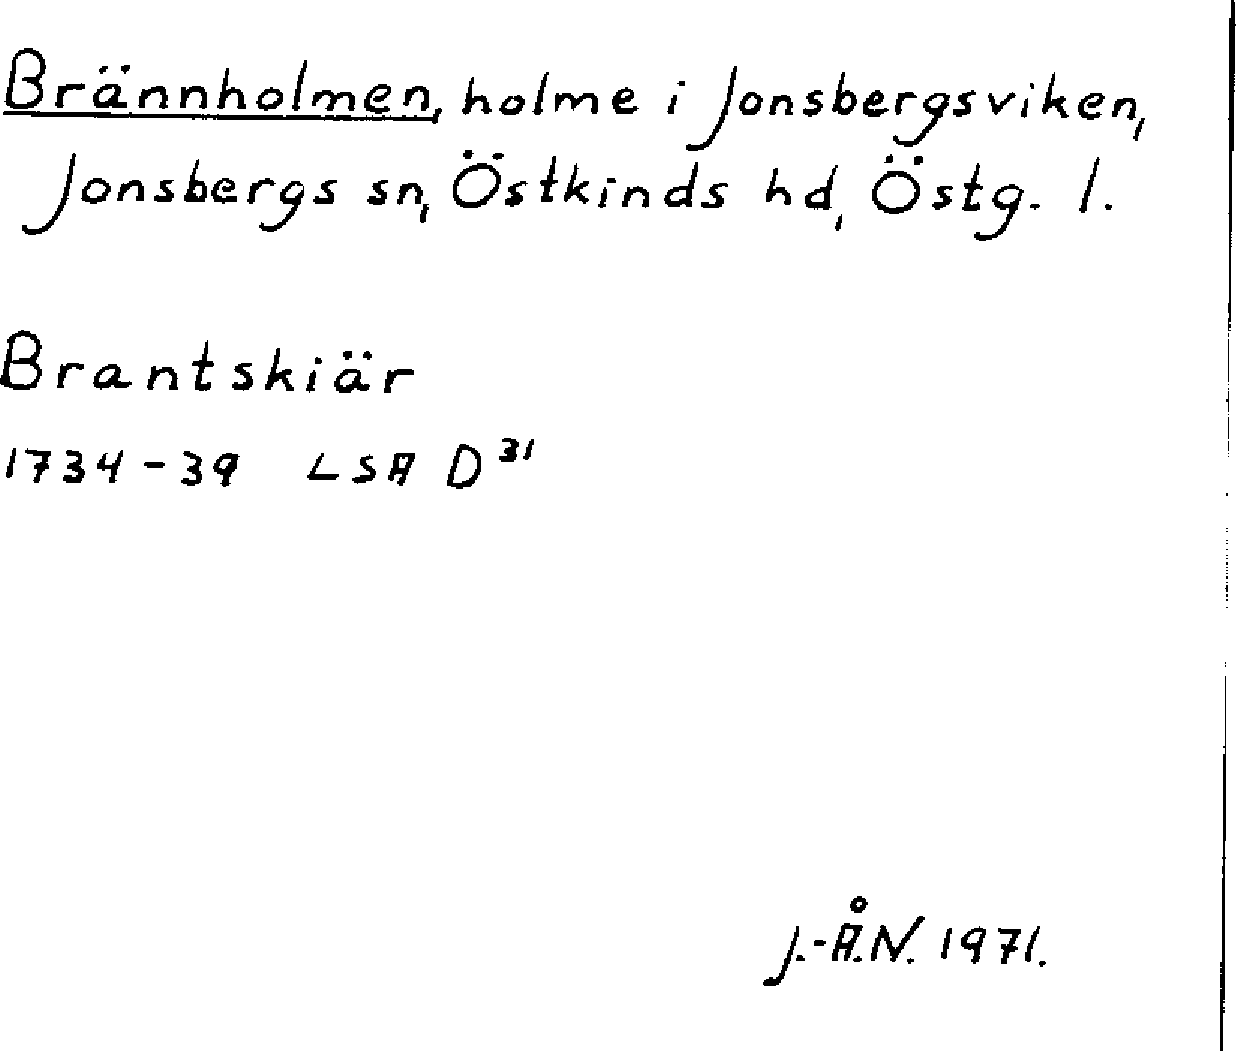 Brännholmen, holme i Jonsbergsviken,
Jonsbergs sn, Östkinds hd, Östg. l.
Brantskiär
1734-39 LSA D 31
J.-Å.N. 1971.